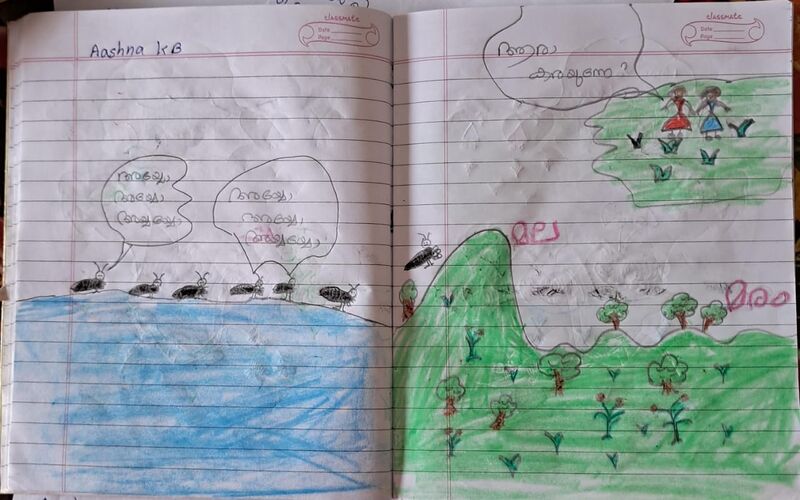 Aashna KB
classmate
Date
Page
അയ്യോ
അയ്യോ
അയ്യയ്യോ
അയ്യോ
അയ്യോ
അയ്യയ്യോ
classmate
Date
Page
ആരാ
കരയുന്നേ?
മല
മരം